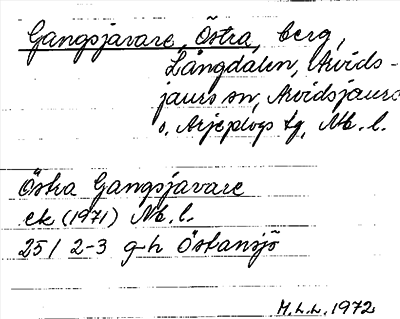 Gangsjavare, Östra, berg,
Långdalen, Arvids-
jaurs sn, Arvidsjaurs
o. Arjeplogs tg, Nb. l.
Östra Gangsjavare
ek (1971) Nb. l.
25I 2-3 g-h Östansjö
H.L.L. 1972